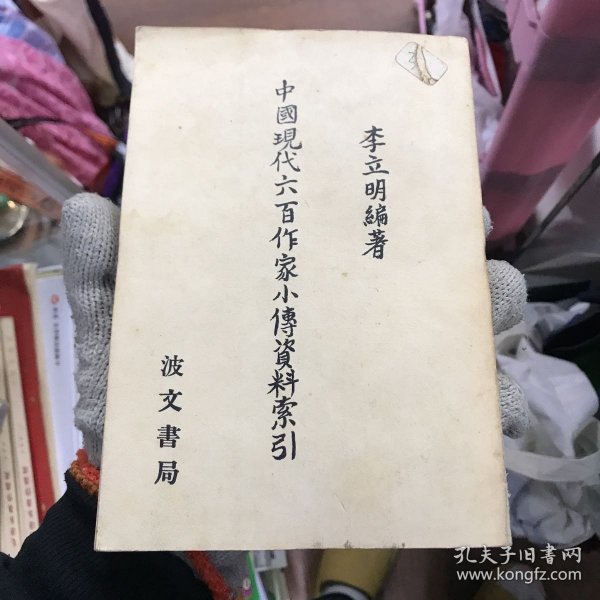 李立明編著
中國現代六百作家小傳資料索引
波文書局
孔夫子旧书网
www.kongfz.com